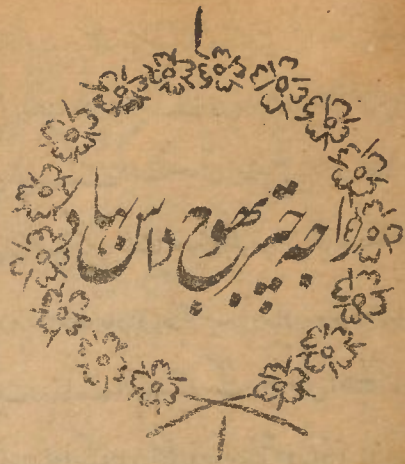 راجه چتر بھوج داس بہادر